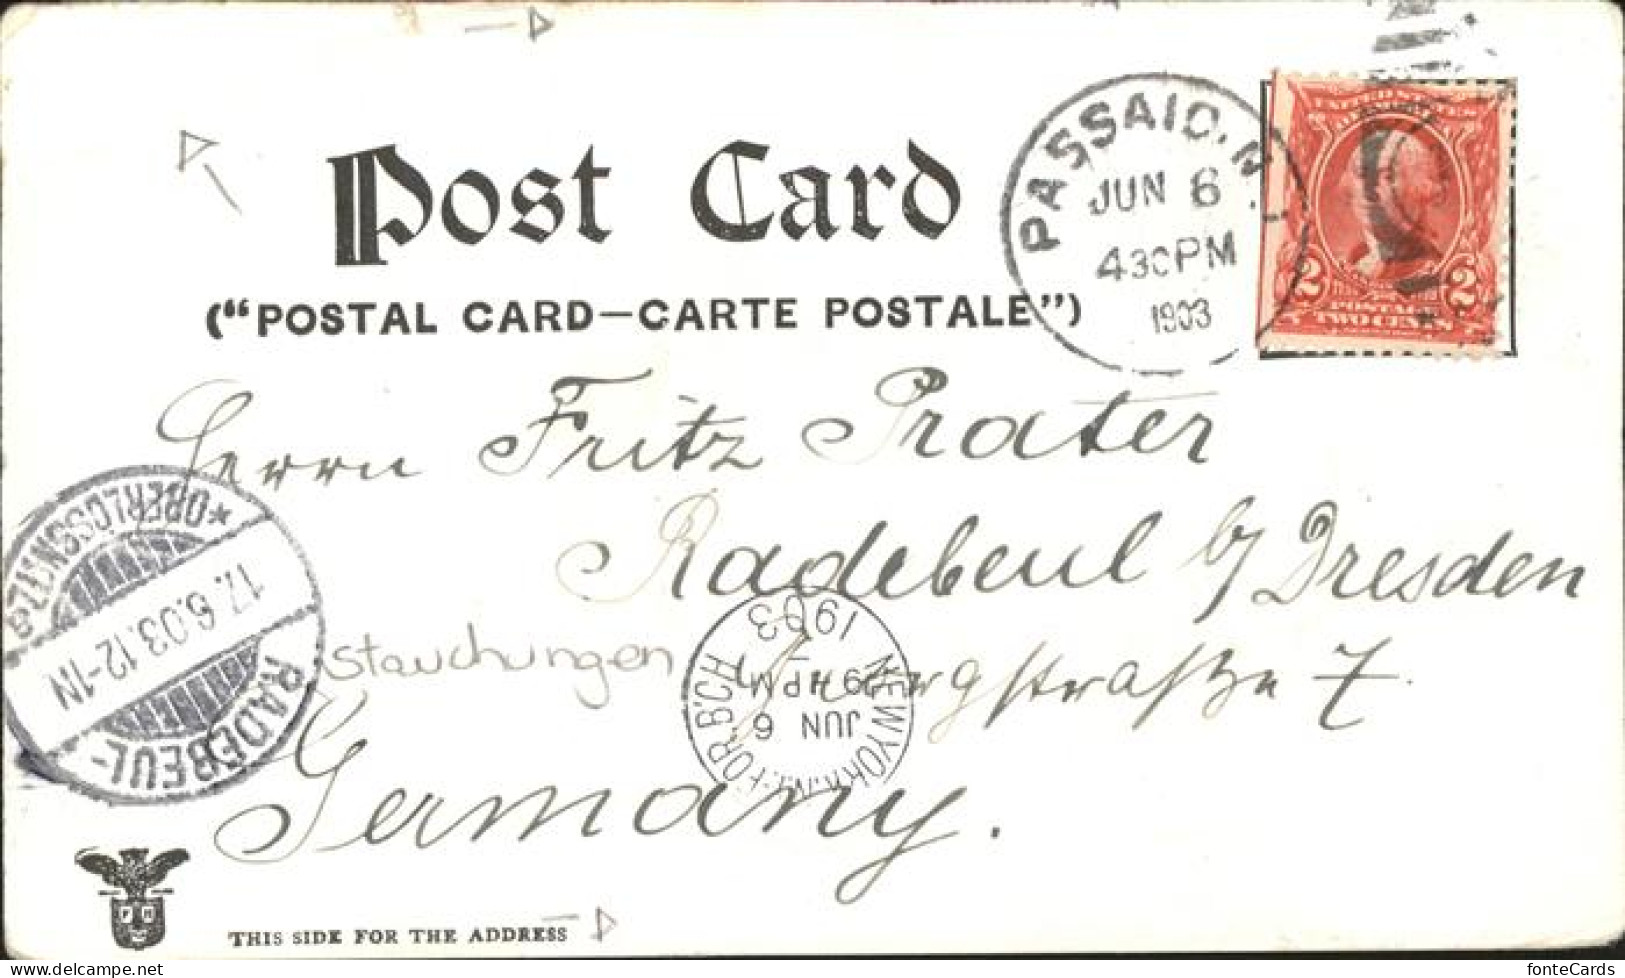 Post Card
("POSTAL CARD—CARTE POSTALE")
PASSAIC, N.J.
JUN 6
430PM
1903
UNITED STATES
POSTAGE
TWO CENTS
2 2
Herrn Fritz Prater
Radebeul b/ Dresden
7.
Germany.
Stauchungen
NEW YORK, N.Y. FOR. B'CH
JUN 6
PM
1903
*OBERLÖSSNITZ
17.6.03.12-1N
RADEBEUL-
THIS SIDE FOR THE ADDRESS
fonteCards